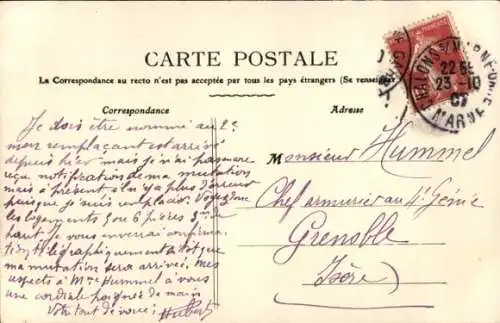 CARTE POSTALE
La Correspondance au recto n'est pas acceptée par tous les pays étrangers (Se renseigner
Correspondance
Adresse
CHALONS S/ MARNE
22
23 - 10
07
MARNE
Je dois être nommé au 2e
mon remplaçant est arrivé
depuis hier mais je n'ai pas encore
reçu notification de ma mutation
mais à présent il n'y a plus d'erreur
puisque je suis remplacé. Voyez donc
les logements 5 ou 6 pièces
haut. Je vous enverrai
télégraphiquement
ma mutation sera arrivée. Mes
respects à Mme Hummel à vous
une cordiale poignée de main
Votre tout dévoué
Hubert
Monsieur Hummel
Chef armurier au 4e Génie
Grenoble
Isère